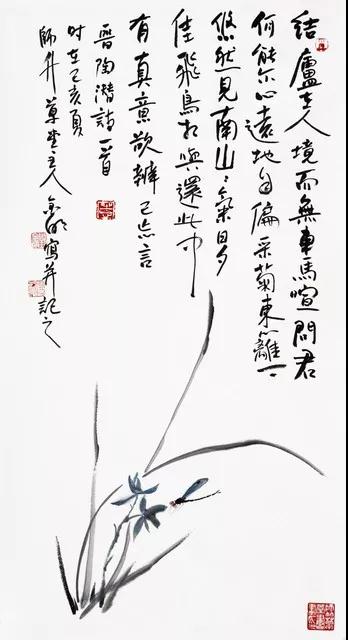 结廬在人境而無車馬喧問君
何能尔心遠地自偏采菊東籬下
悠然見南山〻氣日夕
佳飛鳥相與還此中
有真意欲辨已忘言
晉陶潛詩一首
时在己亥夏
師竹草堂主人寫并記之